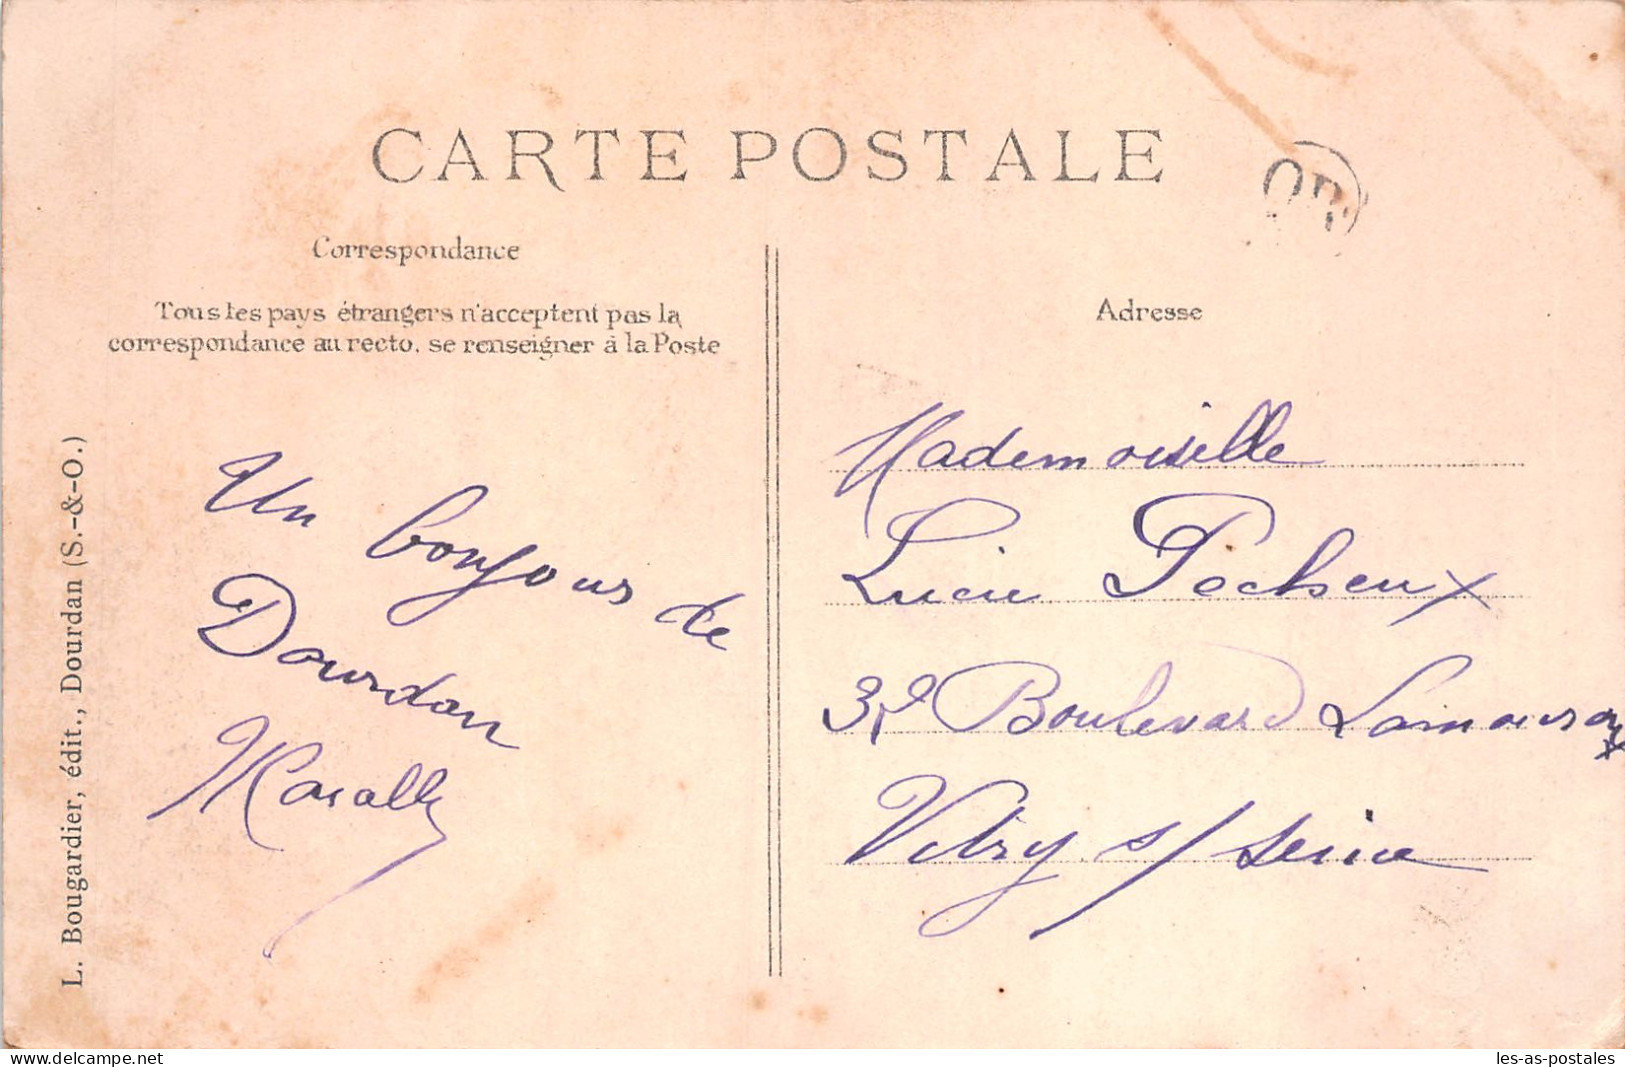 CARTE POSTALE
OR
Correspondance
Tous les pays étrangers n'acceptent pas la
correspondance au recto, se renseigner à la Poste
Un bonjour de
Dourdan
Adresse
Mademoiselle
Lucie Pecheux
Boulevard Lamouroux
Vitry s/ Seine
L. Bougardier, édit., Dourdan (S.-&-O.)
delcampe.net
les-as-postales